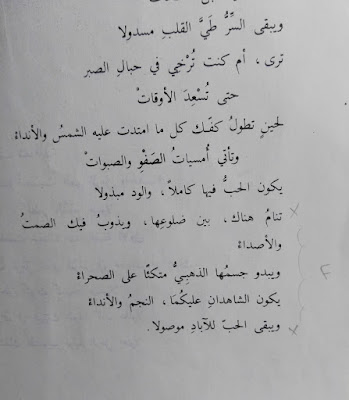 ويبقى السِّرُّ طَيَّ القلبِ مسدولا
ترى ، أم كنت تُرْخي في حبالِ الصبر
حتى تُسْعِدَ الأوقاتْ
لحينٍ تطولُ كفّـك كل ما امتدت عليه الشمسُ والأنداءُ
وتأتي أُمسياتُ الصَفْوِ والصبواتْ
يكون الحبُّ فيها كاملاً، والود مبذولا
تنامُ هناك، بين ضلوعِها، ويذوبُ فيك الصمتُ
والأصداءُ
ويبدو جسمُها الذهبيُّ متكئًا على الصحراءْ
يكون الشاهدانِ عليكُمَا، النجمُ والأنداءُ
ويبقى الحبّ للآبادِ موصولا.